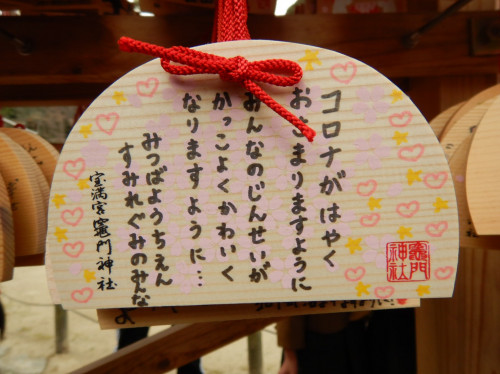 コロナがはやく
おさまりますように
みんなのじんせいが
かっこよくかわいく
なりますように…
みつばようちえん
すみれぐみのみな
より
宝満宮竈門神社
竈門
神社